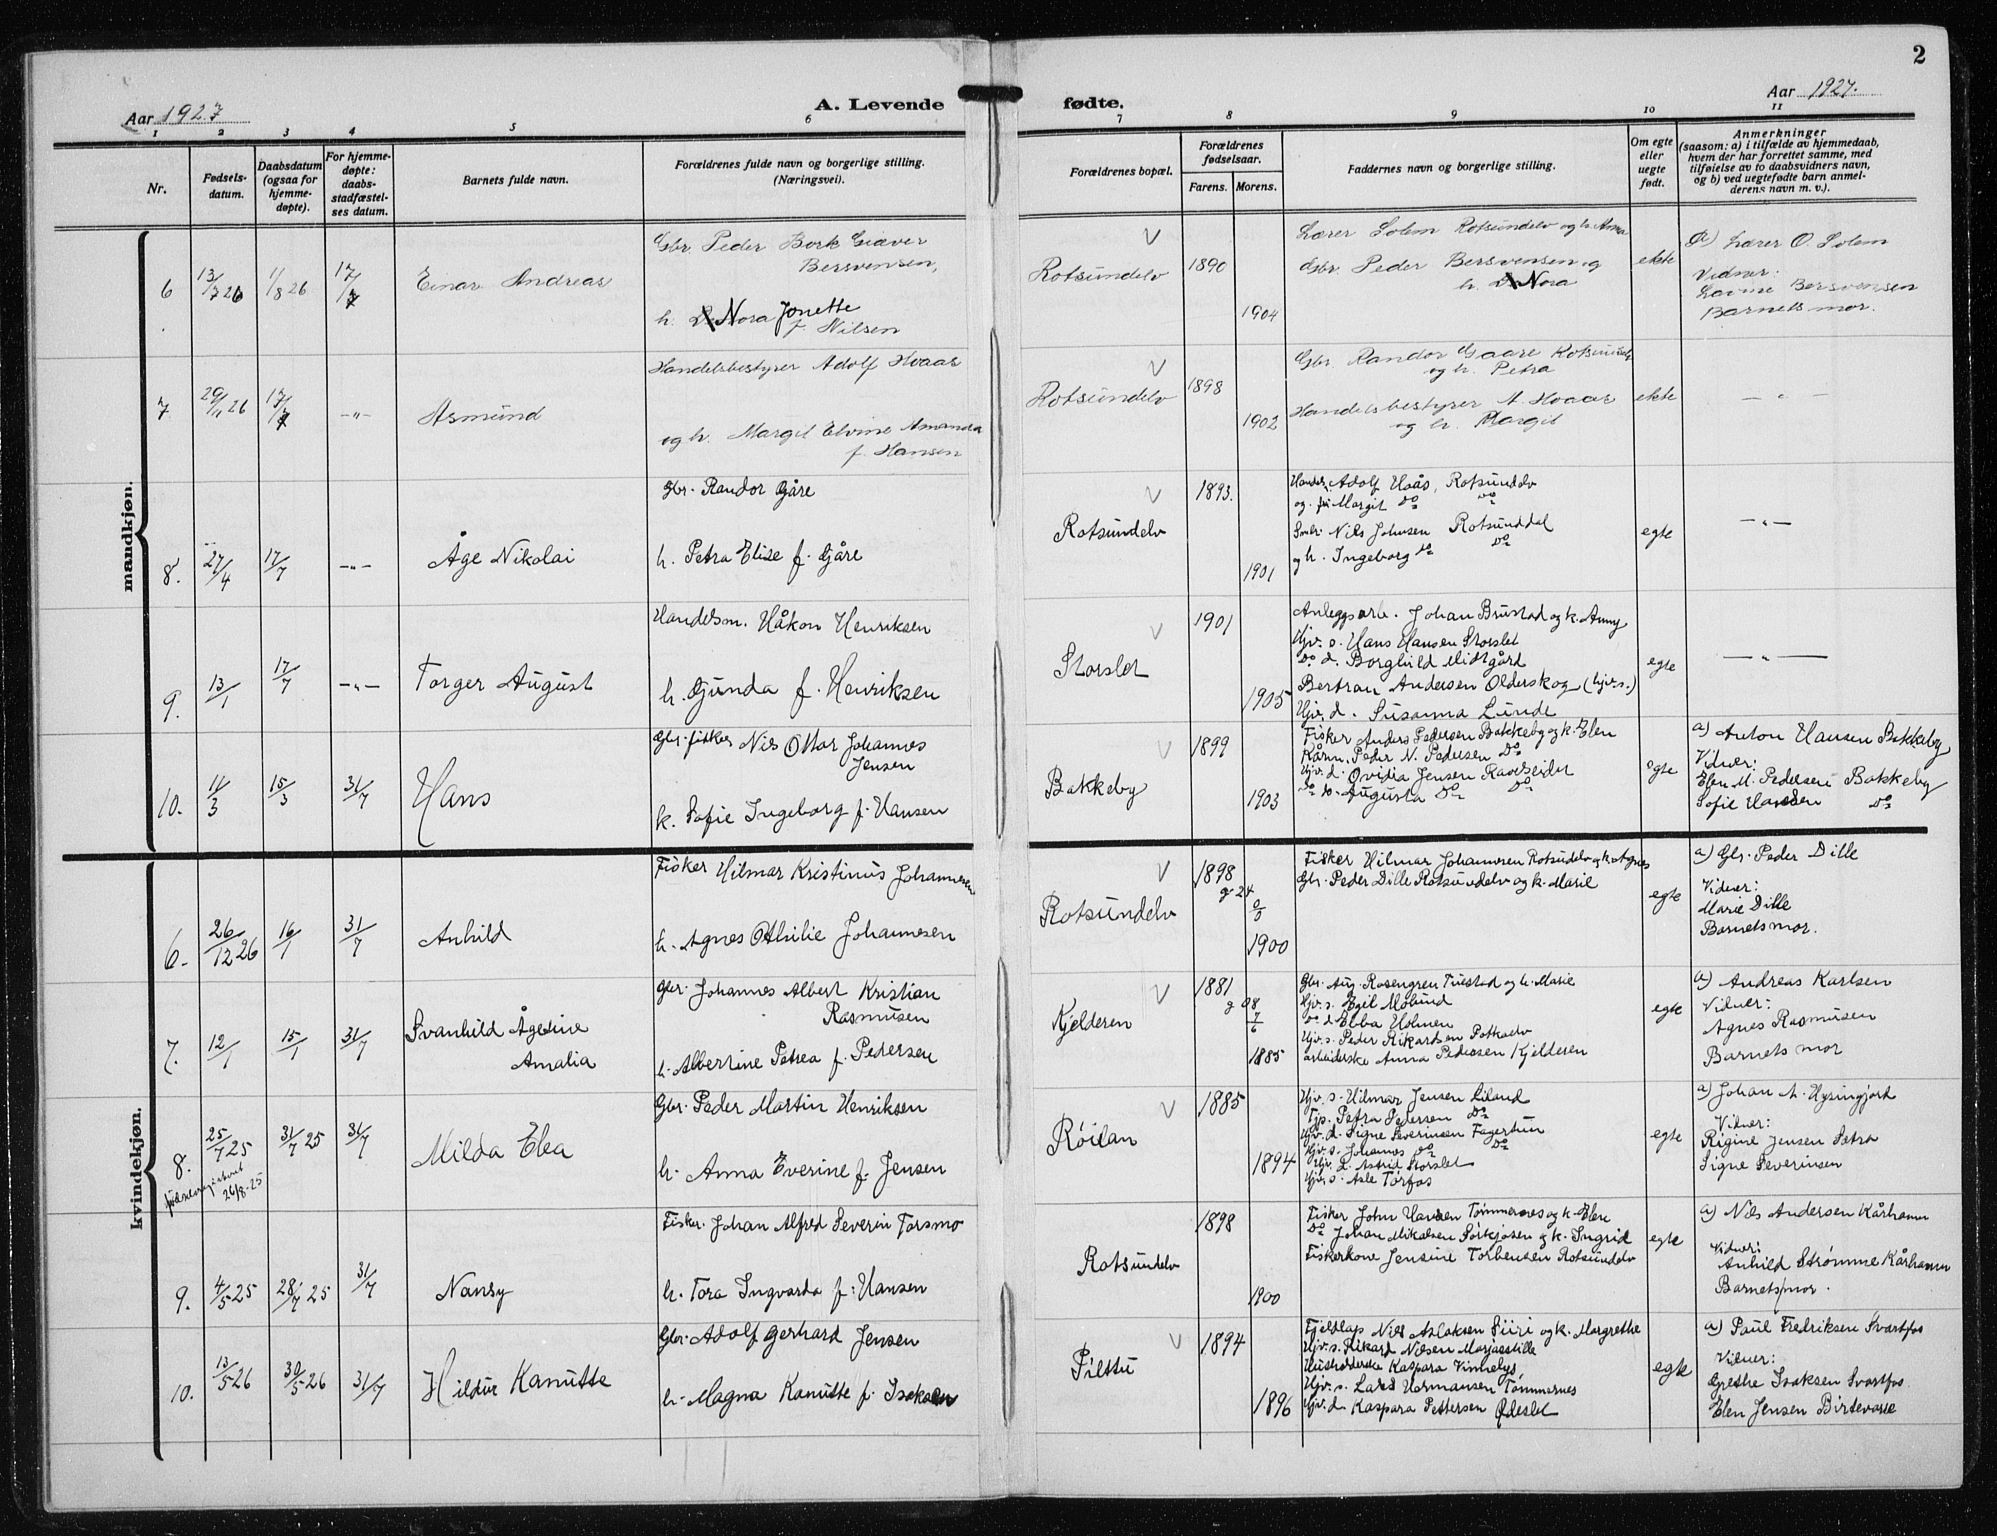 2
Aar 1927
A. Levende
fødte.
Aar 1927.
1 2 3 4 5 6 7 8 9 10 11
Nr.
Fødsels-
datum.
Daabsdatum
(ogsaa for
hjemme-
døpte).
For hjemme-
døpte:
daabs-
stadfæstel-
ses datum.
Barnets fulde navn.
Forældrenes fulde navn og borgerlige stilling.
(Næringsvei).
Forældrenes bopæl.
Forældrenes
fødselsaar.
Farens. Morens.
Faddernes navn og borgerlige stilling.
Om egte
eller
uegte
født.
Anmerkninger
(saasom: a) i tilfælde av hjemmedaab,
hvem der har forrettet samme, med
tilføielse av to daabsvidners navn,
og b) ved uegtefødte barn anmel-
derens navn m. v.).
mandkjøn.
6
13/7 26
1/8 26
17/7
Einar Andreas
Gbr. Peder Bork Giæver
Bersvensen,
h. Nora Jonette
f. Nilsen
Rotsundelv
1890
1904
Lærer Solem Rotsundelv og h. Anna
Gbr. Peder Bersvensen og
h. Nora
ekte
a) Lærer O. Solem
Vidner:
Lovise Bersvensen
Barnets mor.
7
29/11 26
17/7
-"-
Asmund
Handelsbestyrer Adolf Hvaas
og h. Margit Elvine Amanda
f. Hansen
Rotsundelv
1898
1902
Gbr. Randor Gaare Rotsundelv
og h. Petra
Handelsbestyrer A Hvaas
og h. Margit
ekte
- " -
8.
27/4
17/7
-"-
Åge Nikolai
Gbr. Randor Gåre
h. Petra Elise f. Gåre
Rotsundelv
1893.
1901
Handelsb. Adolf Haås, Rotsundelv
og fru Margit Do Do
Smbr. Nils Johnsen Rotsunddal
og h. Ingeborg Do Do
egte
-"-
9.
13/1
17/7
-"-
Torger August
Handelsm. Håkon Henriksen
h. Gjunda f. Henriksen
Storslet
1901
1905
Anleggsarb. Johan Brustad og k. Anny
Ujv. s. Hans Hansen Storslet
Do d. Borghild Midtgård
Bertran Andersen Olderskog (Ujv. s.)
Ujv. d. Susanna Lunde
egte
- " -
10.
11/3
15/3
31/7
Hans
Gbr. fisker Nils Ottar Johannes
Jensen
k. Sofie Ingeborg f. Hansen
Bakkeby
1899
1903
Fisker Anders Pedersen Bakkeby og k. Elen
Kårm. Peder N. Pedersen Do
Ujv. d. Ovidia Jensen Ravelseidet
Do Do Augusta Do Do
egte
a) Anton Hansen Bakkeby
Vidner:
Elen M. Pedersen Bakkeby
Sofie Hansen Do
kvindekjøn.
6.
26/12 26
16/1
31/7
Anhild
Fisker Hilmar Kristinus Johannesen
h. Agnes Othilie Johannesen
Rotsundelv
1898
g 24
1900
Fisker Hilmar Johannesen Rotsundelv og k. Agnes
Gbr. Peder Dille Rotsundelv og k. Marie
egte
a) Gbr. Peder Dille
Vidner:
Marie Dille
Barnets mor.
7.
12/1
15/1
31/7
Svanhild Ågesine
Amalia
Gbr. Johannes Albert Kristian
Rasmusen
h. Albertine Petrea f. Pedersen
Kjelderen
1881
g 08
7/6
1885
Gbr. Aug. Rosengren Tuestad og h. Marie
Ujv. s. Egil Molund
Do d Ebba Holmen
Ujv. s. Peder Rikardsen Potkaelv
arbeiderske Anna Pedersen Kjelderen
egte
a) Andreas Karlsen
Vidner:
Agnes Rasmusen
Barnets mor
8.
25/7 25
fødselsregistrert
26/8-25
31/7 25
31/7
Milda Elea
Gbr. Peder Martin Henriksen
h. Anna Everine f. Jensen
Røilan
1885
1894
Ujv. s. Hilmar Jensen Liland
Tjp. Petra Pedersen Do
Ujv. d. Signe Severinsen Fagertun
Ujv. s. Johannes Do Do
Ujv. d. Astrid Storslet
Ujv. s. Asle Torfos
egte
a) Johan A. Hysingjord
Vidner:
Rigine Jensen Sætra
Signe Severinsen
9.
4/5 25
28/7 25
31/7
Nansy
Fisker. Johan Alfred Severin Torsmo
h. Tora Ingvarda f. Hansen
Rotsundelv
1898
1900
Fisker John Hansen Tømmernes og k. Elen
Do Johan Mikalsen Sørkjosen og k. Ingrid
Fiskerkone Jensine Torbensen Rotsundelv
egte
a) Nils Andersen Kårhamn
Vidner:
Anhild Strømme Kårhamn
Barnets mor.
10.
13/5 26
30/5 26
31/7
Hildur Kanutte
Gbr. Adolf Gerhard Jensen
h. Magna Kanutte f. Isaksen
Pilttu
1894
1896
Fjeldlap Nils Aslaksen Siiri og k. Margrethe
Ujv. s. Rikard Nilsen Marjasstille
Husholderske Kaspara Vinnelys
Ujv. s. Lars Hermansen Tømmernes
Ujv. d Kaspara Pettersen Ødeslet
egte
a) Paul Fredriksen Svartfos
Vidner:
Grethe Isaksen Svartfos
Elen Jensen Birtevarre